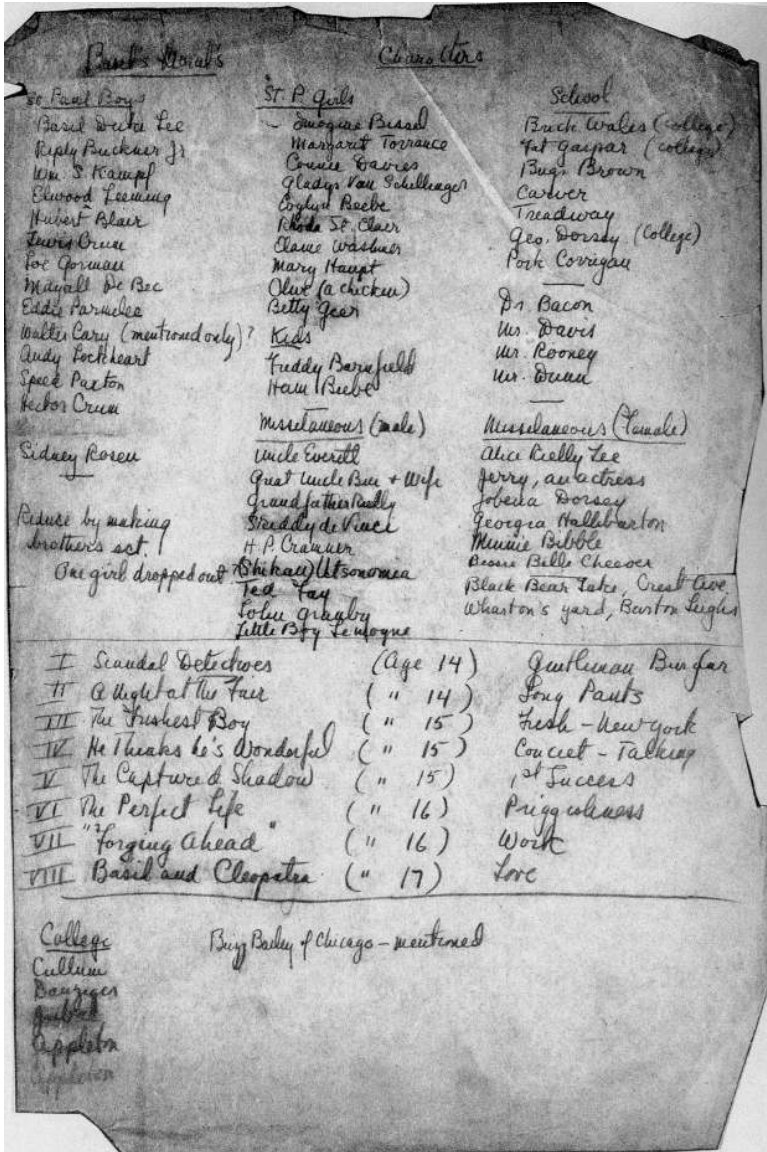 Characters
St Paul Boys
Basil Duke Lee
Riply Buckner Jr
Wm S. Kampf
Elwood Leeming
Hubert Blair
Lewis Crum
Joe Gorman
Mayall De Bec
Eddie Parmelee
Walter Cary (mentioned only)?
Andy Lockheart
Speed Paxton
Hector Crum
Sidney Rosen
Reduce by making
brothers ect.
One girl dropped out
St. P. Girls
Imogine Bissel
Margaret Torrance
Connie Davies
Gladys Van Schellinger
Evylyn Beebe
Rhoda St. Clair
Elaine Washmer
Mary Haupt
Olive (a chicken)
Betty Gear
Kids
Freddy Barnfield
Ham Beebe
Misselaneous (male)
Uncle Everett
Great Uncle + Wife
Grandfather Rielly
de Vinci
H.P. Crammer
(Shikau) Utsonomia
Ted Fay
John Granby
Little Boy Lemoyne
School
Brick Wales (college)
Fat Gaspar (college)
Bugs Brown
Carver
Treadway
Geo. Dorsey (college)
Pork Corrigan
Dr. Bacon
Mr. Davis
Mr. Rooney
Mr. Dunn
Misselaneous (Female)
Alice Rielly Lee
Jerry, an actress
Jobena Dorsey
Georgia Halliburton
Minnie Bibble
Bessie Belle Cheever
Black Bear Lake, Crest Ave.
Wharton's yard, Burton
I Scandal Detectives (Age 14) Gentleman Burglar
II A Night at the Fair (" 14) Long Pants
III The Freshest Boy (" 15) Fresh – New York
IV He Thinks he's Wonderful (" 15) Conciet – Talking
V The Captured Shadow (" 15) 1st Success
VI The Perfect Life (" 16) Priggishness
VII "Forging Ahead" (" 16) Work
VIII Basil and Cleopatra (" 17) Love
College
Cullum
Danziger
Appleton
Appleton
Buzz Bailey of Chicago – mentioned